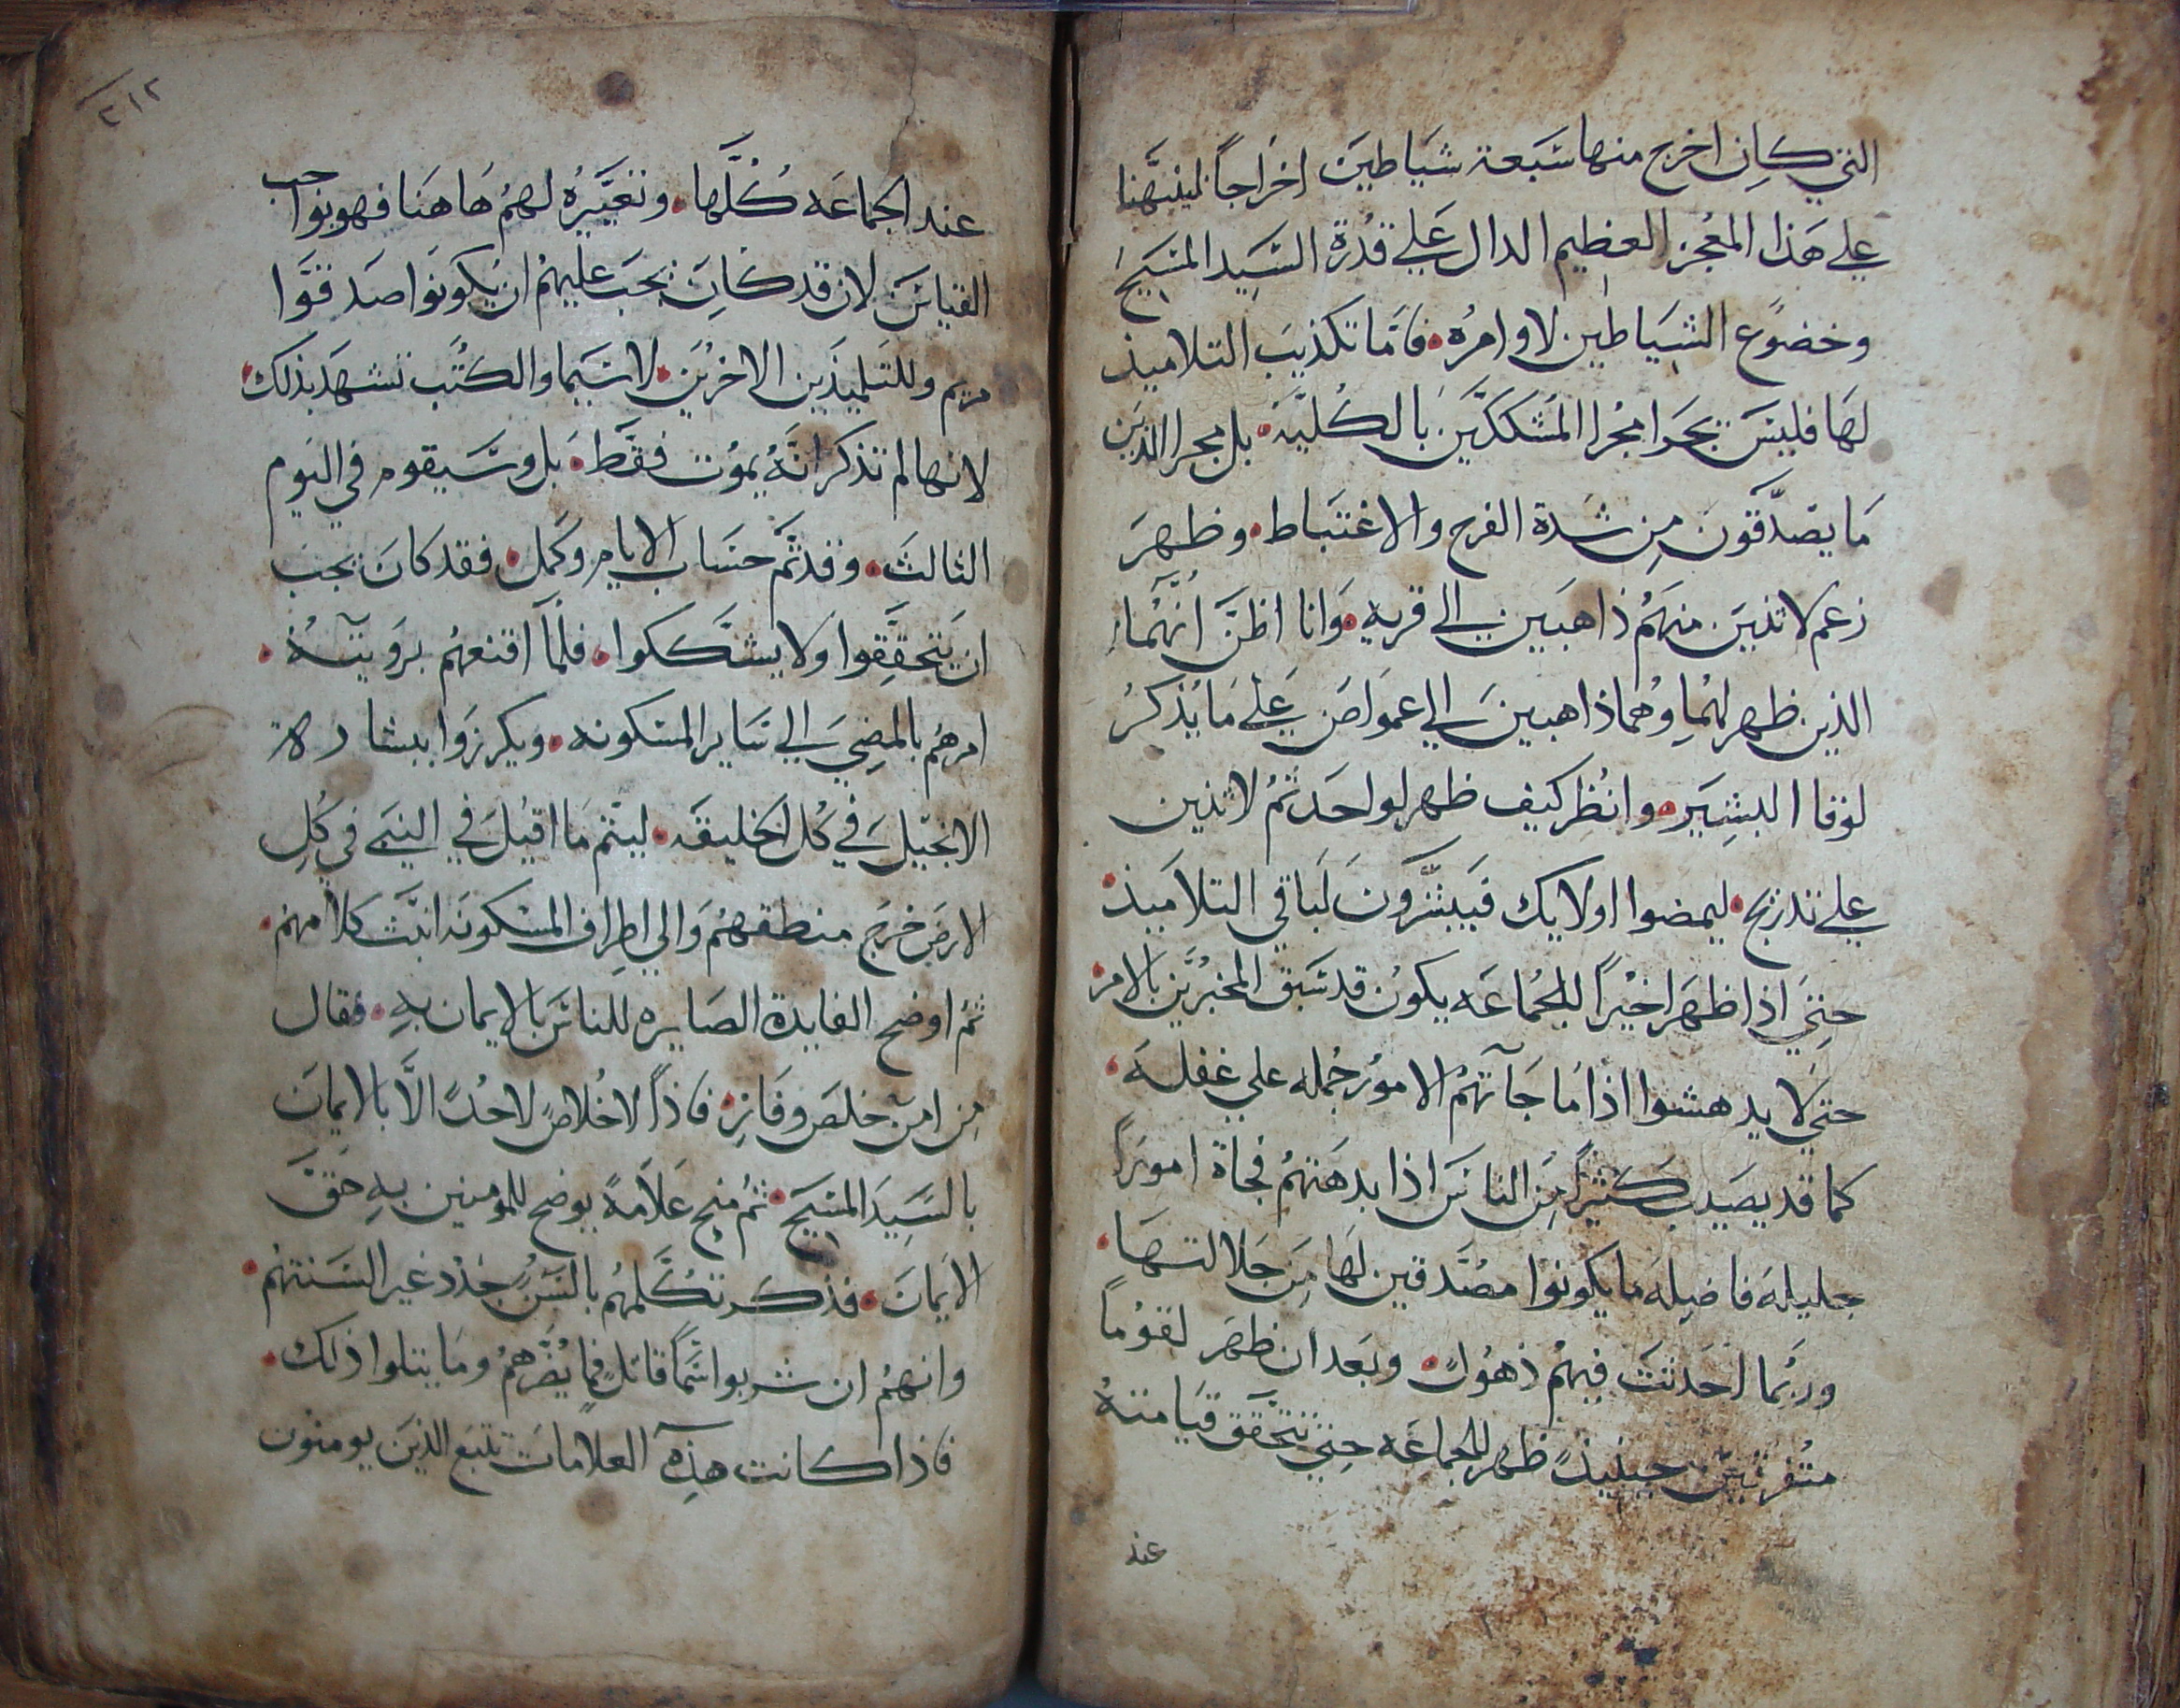 التي كان اخرج منها سبعة شياطين اخراجاً لينبهنا
علي هذا المعجز العظيم الدال علي قدرة السيد المسيح
وخضوع الشياطين لاوامره فاما تكذيب التلاميذ
لها فليس تجرا مجرا المشككين بالكلية بل مجرا الذين
ما يصدقون من شدة الفرح والاغتباط وظهر
زعم لاثنين منهم ذاهبين الي قرية وانا اظن انهما
الذين ظهر لهما وهما ذاهبين الي عمواص علي ما يذكر
لوقا البشير وانظر كيف ظهر لواحد ثم لاثنين
علي تدريج ليمضوا اولايك فيبشرون لباقي التلاميذ
حتي اذا ظهر اخيراً للجماعه يكون قد سبق المخبرين بالامر
حتي لا يدهشوا اذا ما جآتهم الامور جمله علي غفلة
كما قد يصيب كثيراً من الناس اذا بدهتهم فجاة اموراً
جليلة فاضله ما يكونوا مصدقين لها من جلالتها
وربما احدثت فيهم ذهول وبعد ان ظهر لقوماً
متفرقين حينيذٍ ظهر للجماعه حتي تتحقق قيامته
عند
٢١٢
عند الجماعه كلها وتعييره لهم هاهنا فهو بواجب
القياس لان قد كان يجب عليهم ان يكونوا صدقوا
مريم وللتلميذين الاخرين لاسيما والكتب تشهد بذلك
لانها لم تذكر انه يموت فقط بل وسيقوم في اليوم
الثالث وقد تم حساب الايام وكمل فقد كان يجب
ان يتحققوا ولا يشككوا فلما اقنعهم برويته
امرهم بالمضي الي ساير المسكونه ويكرزوا ببشارة
الانجيل في كل الخليقه ليتم ما اقيل في النبي في كل
الارض خرج منطقهم والي اطراف المسكونه انبث كلامهم
ثم اوضح الفايدة الصايره للناس بالايمان به فقال
من امن خلص وفاز فاذاً لا خلاص لاحد الا بالايمان
بالسيد المسيح ثم منح علامة يوضح للمومنين به حقق
الايمان فذكر تكلمهم بالسن جدد غير السنتهم
وانهم ان شربوا سماً قاتل فما يضرهم وما يتلوا ذلك
فاذا كانت هذه العلامات تتبع الذين يومنون